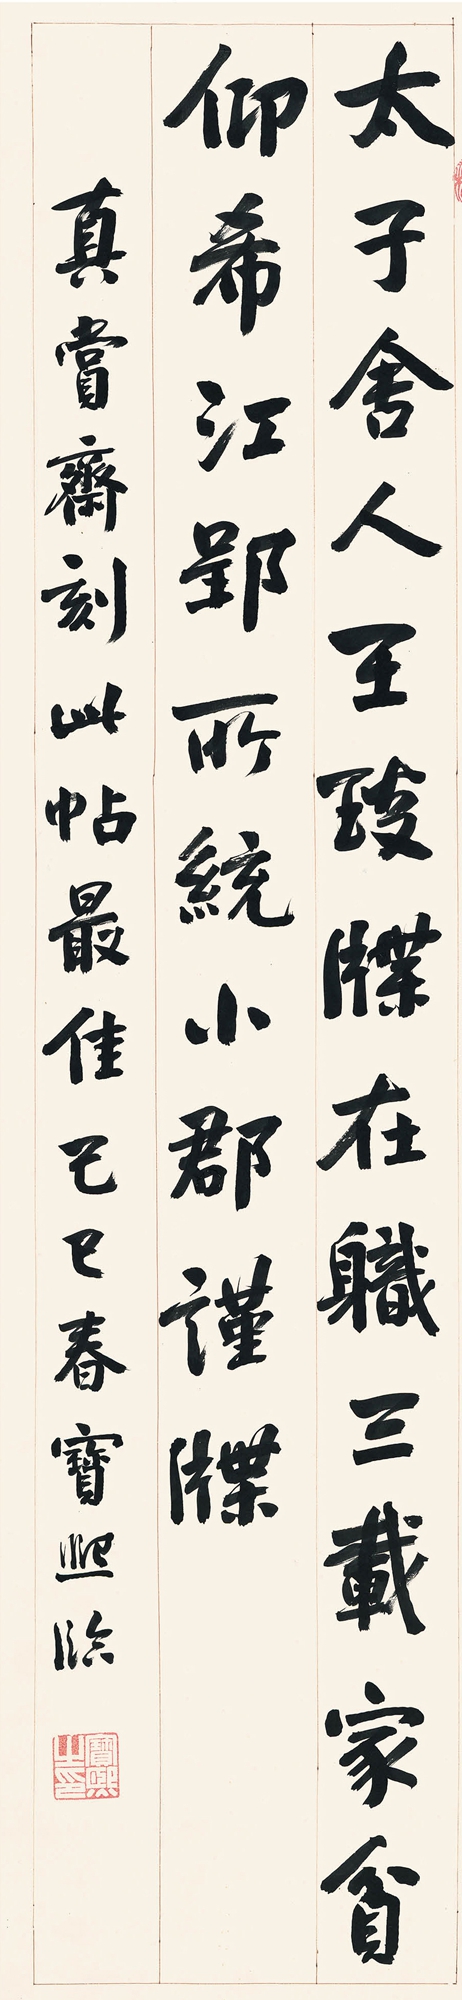 太子舍人王琰牒在職三載家貧
仰希江郢所統小郡謹牒
真賞齋刻此帖最佳己巳春寶熙臨
寶熙之印